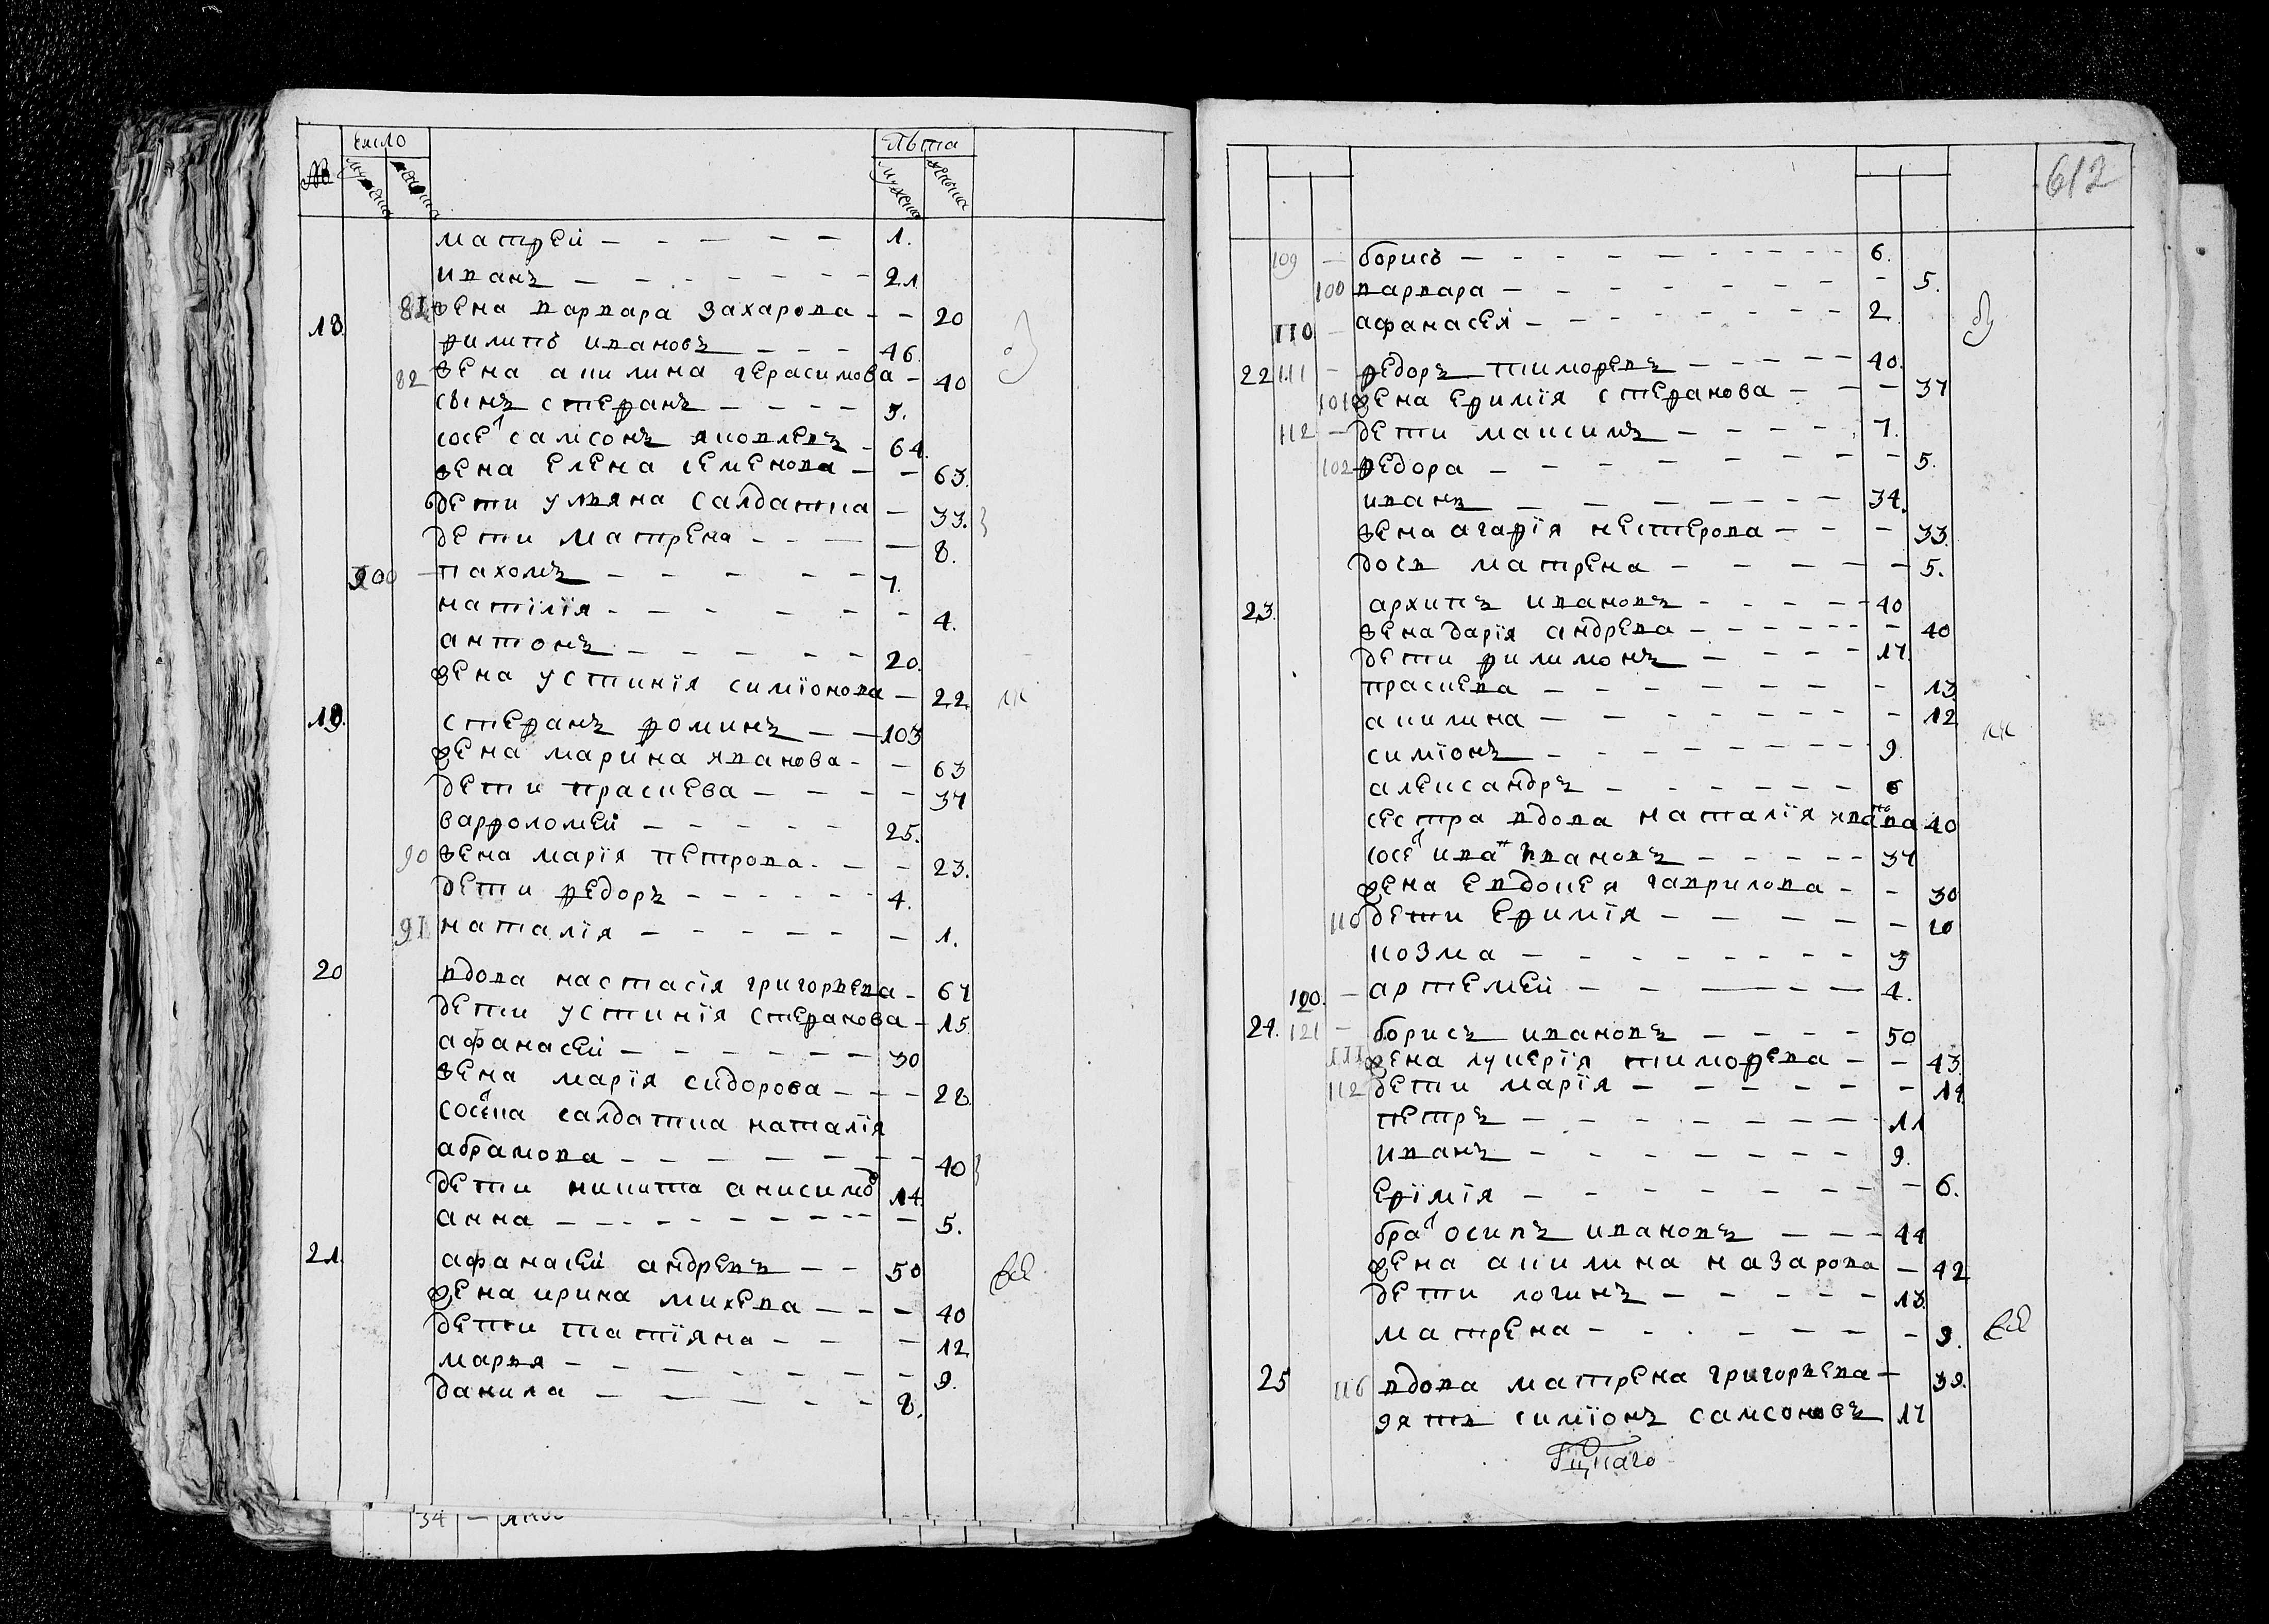 № число лѣта
мужеска женска мужска женска
матѳей — 1.
иванъ — 21
81 жена варвара захарова — 20
18. филипъ ивановъ — 46.
82 жена акилина герасимова — 40
сынъ стефанъ — 3.
сосед самсонъ яковлевъ — 64.
жена елена семенова — 63.
дети ульяна салдатка — 33.
дети матрена — 8.
100 — пахомъ — 7.
натілія — 4.
антонъ — 20.
жена устинія симіонова — 22
19. стефанъ фоминъ — 103
жена марина яванова — 63
дети праскева — 37
варфоломей — 25.
90 жена марія петрова — 23.
дети федоръ — 4.
91 наталія — 1.
20 вдова настасія григорьева — 67
дети устинія стефанова — 15
афанасей — 30
жена марія сидорова — 28.
соседка салдатка наталія
абрамова — 40
дети никита анисимо 14.
анна — 5.
21. афанасей андревъ — 50
жена ирина михева — 40
дети татіяна — 12
марья — 9.
данила — 8.
612
109 — борисъ — 6.
100 варвара — 5.
110 — афанасея — 2
22 111 — федоръ тимофевъ — 40.
101 жена ефимія стефанова — 37
112 — дети максимъ — 7.
102 федора — 5.
иванъ — 34.
жена агафія нестерова — 33
дочь матрена — 5.
23. архипъ ивановъ — 40
жена дарія андрева — 40
дети филимонъ — 17.
праскева — 13
акилина — 12
симіонъ — 9.
александръ — 6
сестра вдова наталія иванова 40
сосед иван ивановъ — 37
жена евдокея гаврилова — 30
110 дети ефимія — 10
козма — 3
120. — артемей — 4.
24. 121 — борисъ ивановъ — 50
111 жена лукерія тимофева — 43.
112 дети марія — 14
петръ — 11
иванъ — 9.
ефімія — 6.
брат осипъ ивановъ — 44
жена акилина назарова — 42
дети логинъ — 13.
матрена — 9.
25 116 вдова матрена григорьева — 39.
зять симіонъ самсоновъ 17